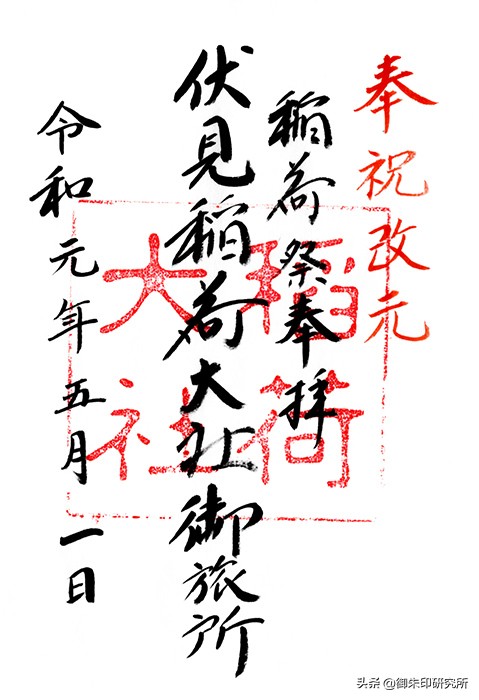 奉祝改元
稲荷祭奉拝
伏見稲荷大社御旅所
令和元年五月一日
稲荷
大社
头条 @御朱印研究所